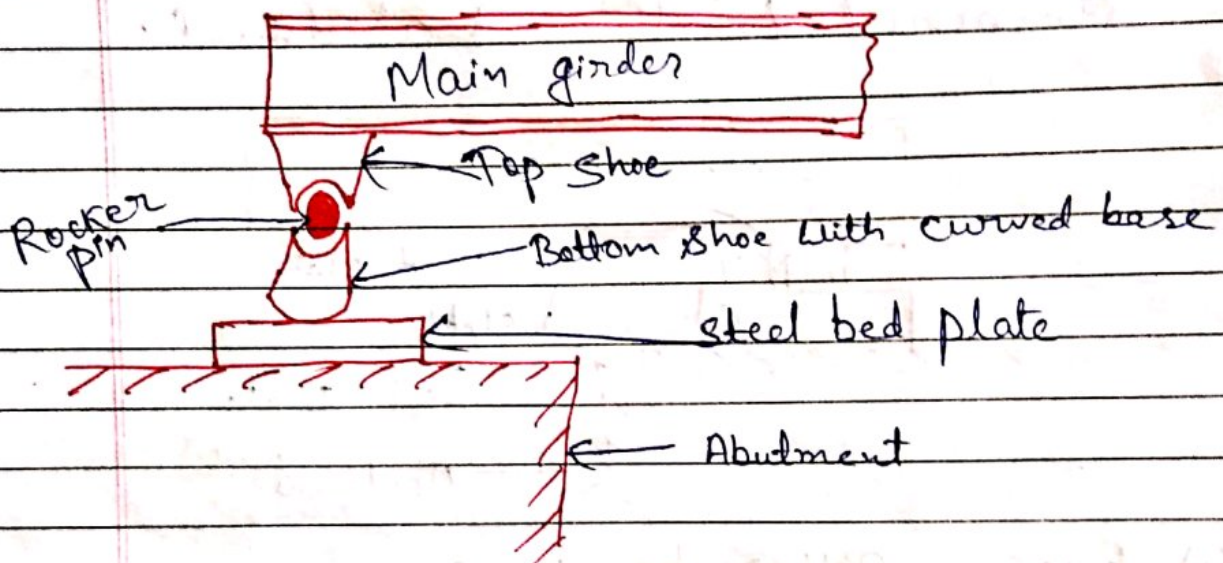 Main girder
Top Shoe
Rocker
pin
Bottom shoe with curved base
steel bed plate
Abutment